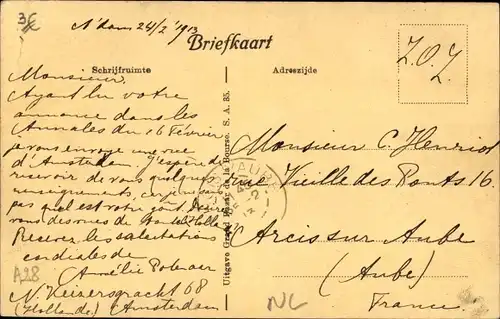 A'dam 24/2 1913
Briefkaart
Schrijfruimte
Adreszijde
Z.O.Z.
Monsieur,
Ayant lu votre
annonce dans les
Annales du 16 Février
je vous envoye une vue
d'Amsterdam. J'espère de
recevoir de vous quelques
renseignements, car je ne sais
pas quel est votre
vous des vues de Hollande
Recevez les salutations
cordiales de
Amélie
N. Keizersgracht 68
(Hollande) Amsterdam
Uitgave Grand Bazar de la Bourse. S. A. 35.
Monsieur C. Henriot
rue Vieille des Ponts 16.
Arcis sur Aube
(Aube)
France.
A28
NL